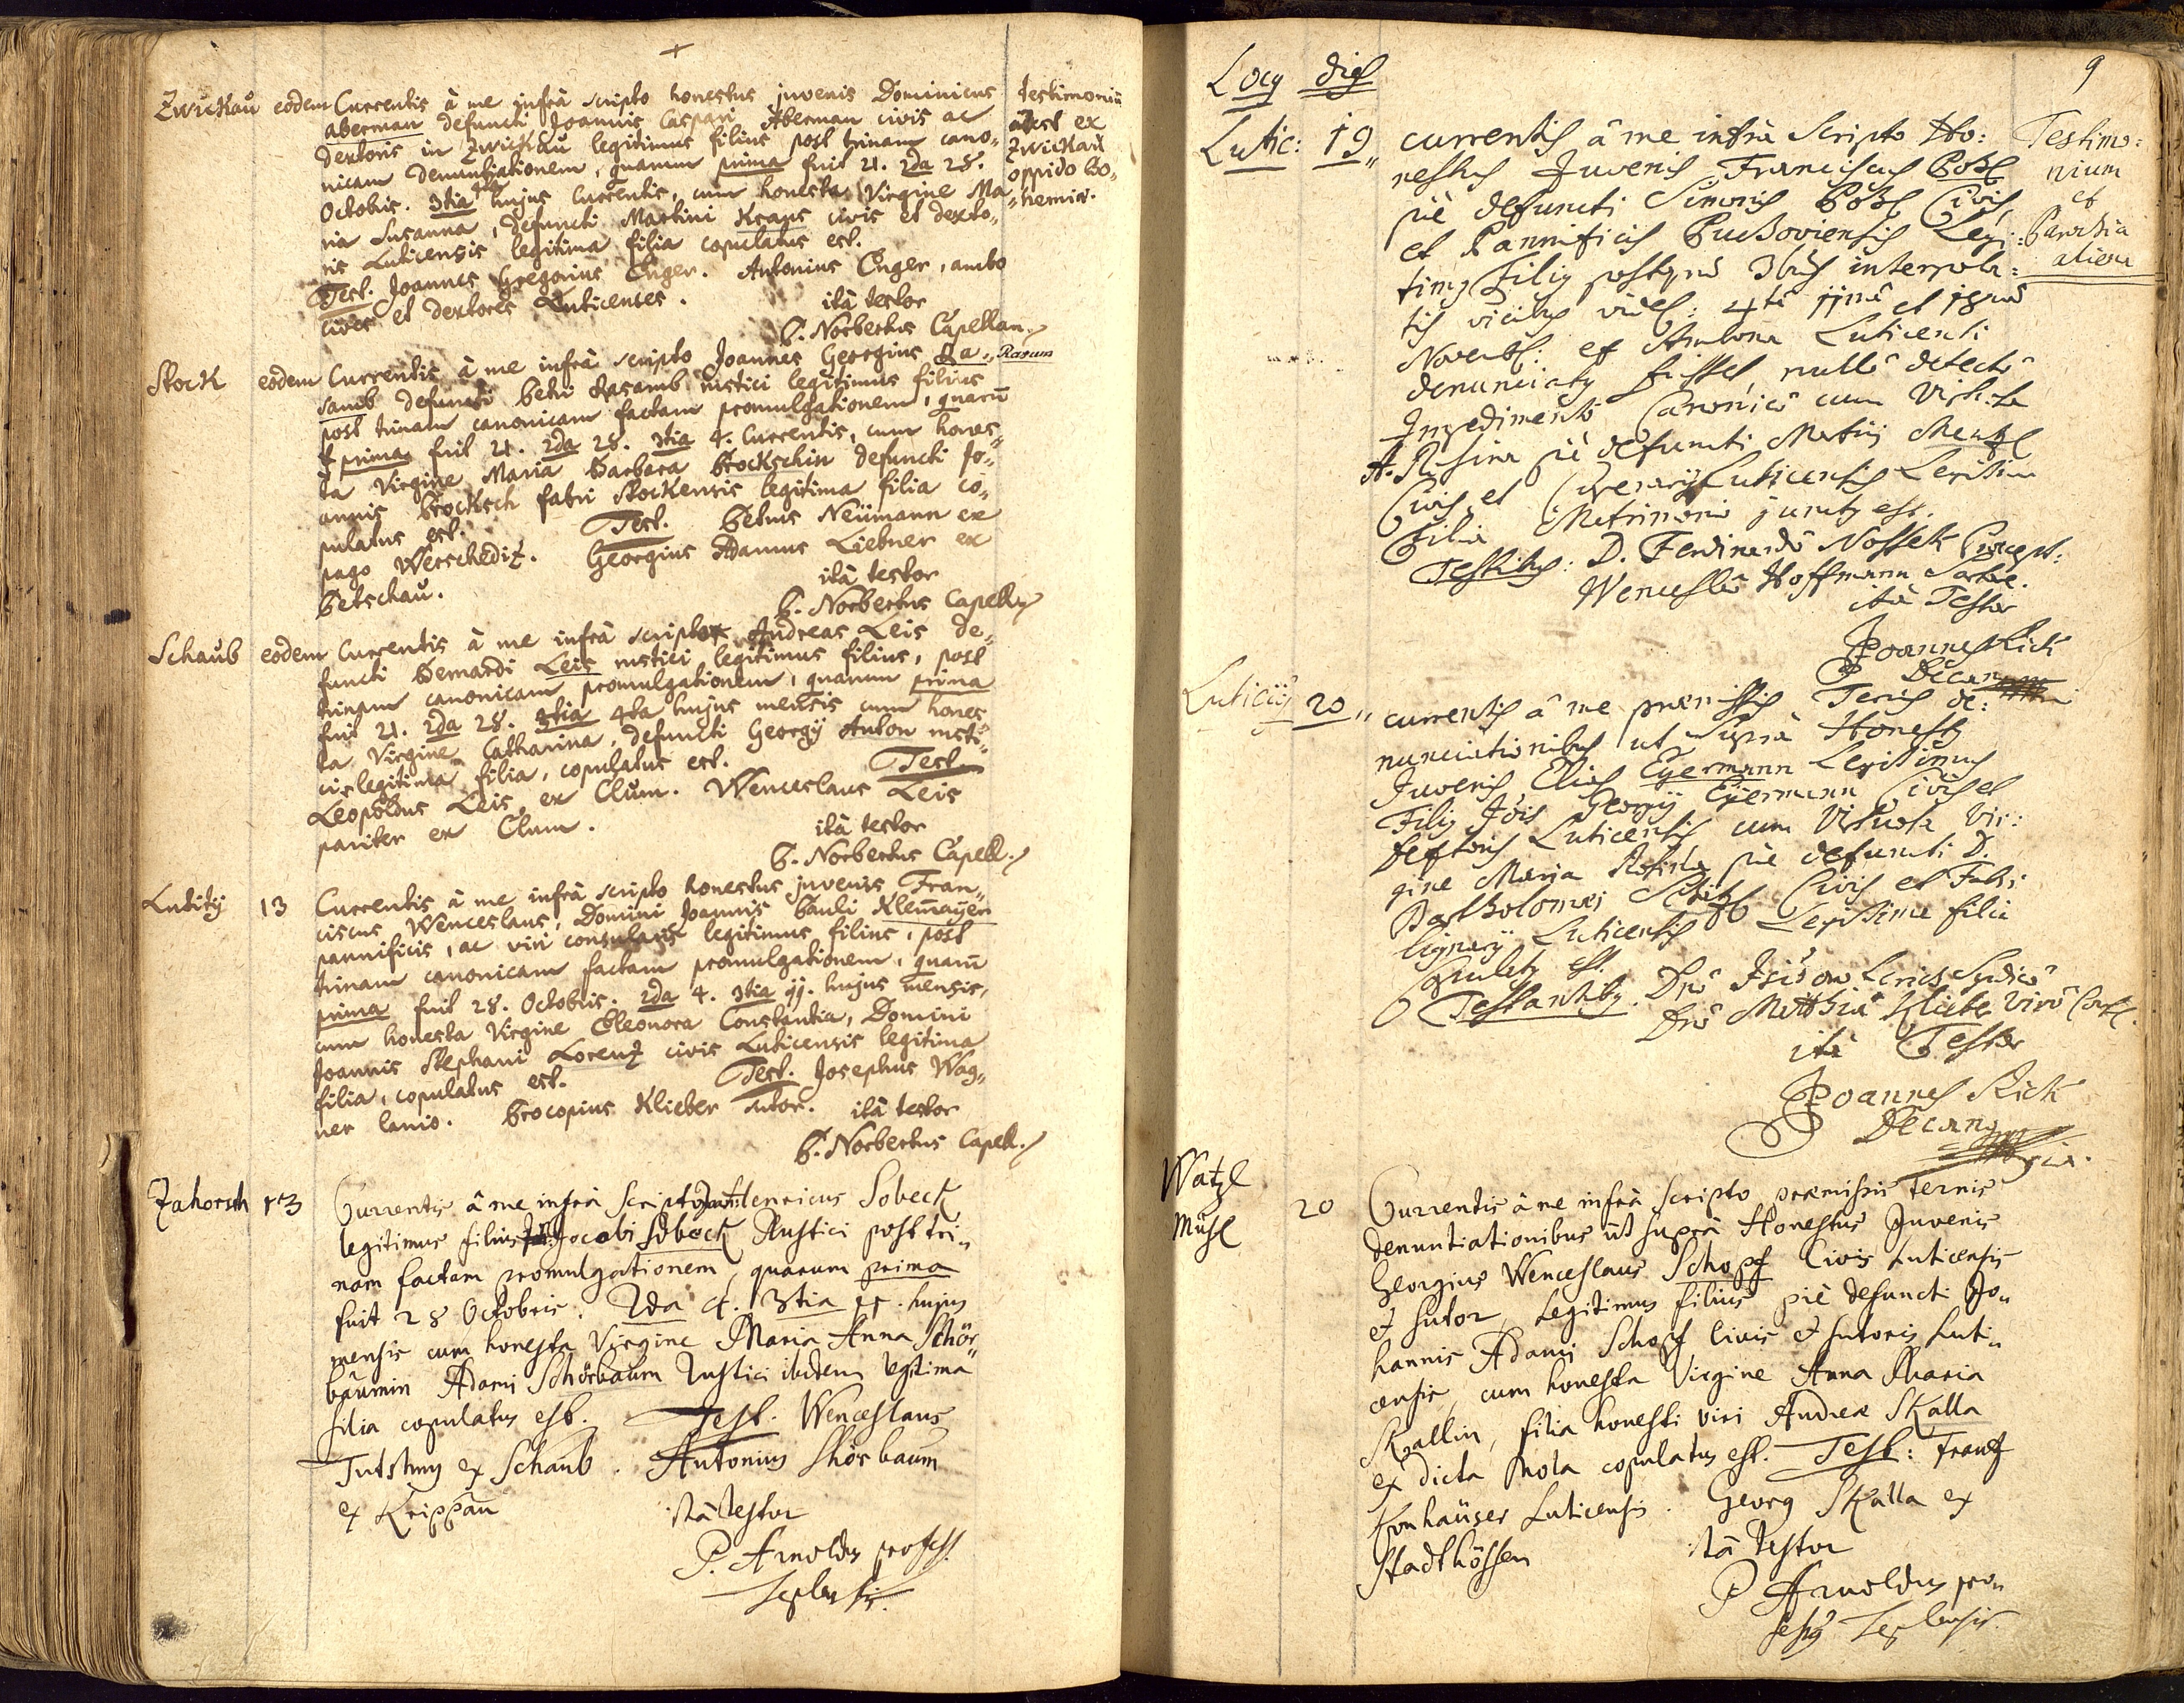 Zwickau eodem Currentis à me infrà scripto honestus juvenis Dominicus
Aberman defuncti Joannis Caspari Aberman civis ac
dextoris in Zwickau legitimus filius post trinam cano„
nicam denuntiationem, quarum prima fuit 21. 2da 28.
Octobris. 3tia 4ta hujus Currentis, cum honesta Virgine Ma„
ria Susanna, defuncti Martini Kraus civis et dexto„
ris Luticensis legitima filia copulatus est.
Test. Joannes Gregorius Enger. Antonius Enger, ambo
cives et dextores Luticenses. ità testor
P. Norbertus Capellan.
Testimoniũ
adest ex
Zwickau
oppido Bo„
hemiæ.
Stock eodem Currentis à me infrà scripto Joannes Georgius Ra„
samb defuncti Petri Rasamb rustici legitimus filius
post trinam canonicam factam promulgationem, quarũ
prima fuit 21. 2da 28. 3tia 4. Currentis, cum hones„
ta Virgine Maria Barbara Brockschin defuncti Jo„
annis Brocksch fabri Stockensis legitima filia co„
pulatus est. Test. Petrus Neümann ex
pago Werschediz. Georgius Adamus Liebner ex
Petschau. ità testor
P. Norbertus Capell.
Rasum
Schaub eodem Currentis à me infrà scripto Andreas Leis de„
functi Bernardi Leis rustici legitimus filius, post
trinam canonicam promulgationem, quarum prima
fuit 21. 2da 28. 3tia 4ta hujus mensis cum hones„
ta Virgine Catharina, defuncti Georgÿ Anton rusti„
cis legitima filia, copulatus est. Test.
Leopoldus Leis ex Clum. Wenceslaus Leis
pariter ex Clum. ità testor
P. Norbertus Capell.
Lutitÿ 13 Currentis à me infrà scripto honestus juvenis Fran„
ciscus Wenceslaus, Domini Joannis Pauli Klem̃aÿer
pannificis, ac viri consularis legitimus filius, post
trinam canonicam factam promulgationem, quarũ
prima fuit 28. Octobris. 2da 4. 3tia 11. hujus mensis,
cum honesta Virgine Eleonora Constantia, Domini
Joannis Stephani Lorenz civis Luticensis legitima
filia, copulatus est. Test. Josephus Wag„
ner lanio. Procopius Klieber sutor. ità testor
P. Norbertus Capell.
Zahorsch 13 Currentis â me infrà Scripto Henricus Sobeck
legitimus filius Jacobi Sobeck Rustici post tri„
nam factam promulgationem, quarum prima
fuit 28 Octobris. 2da 4. 3tia 11. hujus
mensis cum honesta Virgine Maria Anna Schör„
baumin Adami Schörbaum Rustici ibidem legitima
filia copulatus est. Test. Wenceslaus
ex Schaub. Antonius Shörbaum
ex Krippau
ità testor
P. Arnoldus profess.
Teplensis.
9
Locy dies
Lutic: 19„ currentis â me infrà Scripto Ho:
nestus Juvenis Franciscus
piè defuncti Simonis Civis
et Pannificis Legi:
timus Filius postquã 3bus interpola:
tis vicibus videl: 4tâ 11mâ et 18vâ
Novembr: ex Ambona Luticensi
denunciatus fuisset nullô detectô
Impedimentô Canonicô cum
A. Rosina piè defuncti Mentzl
Civis et Luticensis Legitima
Filia Matrimonio junctus est.
Testibus: D. Ferdinandô Nossek
Wenceslaô Hoffmann Sartore.
ità Testor
Joannes Rick
Decanus
Testimo:
nium
et
Parochia
aliena
Luticÿ 20„ currentis â me præmissis Ternis de:
nunciationibus ut Suprà Honestus
Juvenis Elias Eÿermann Legitimus
Filius Jois Georgÿ Eÿermann Civis et
Textoris Luticensis cum Vir:
gine Maria Rosina piè defuncti D.
Bartholomæi Civis et Fabri
lignarÿ Luticensis Legitima filia
Copulatus est.
Testantibus. Dnô Isidoro Syndicô
Dnô Matthiâ Klieber Virô
ità Testor
Joannes Rick
Decanus
Watzl
Mühl 20 Currentis à me infrà scripto præmissis Ternis
denuntiationibus ut suprà Honestus Juvenis
Georgius Wenceslaus Schopf Civis Luticensis
et sutor, Legitimus filius piè defuncti Jo„
hannis Adami Schopf Civis et sutoris Luti„
censis, cum honesta Virgine Anna Maria
Skallin, filia honesti viri Andreæ Skalla
ex dicta Mola copulatus est. Test: Frantz
Luticensis. Georg Skalla ex
Stadthöffen
ità testor
P Arnoldus pro„
fessus Teplensis.